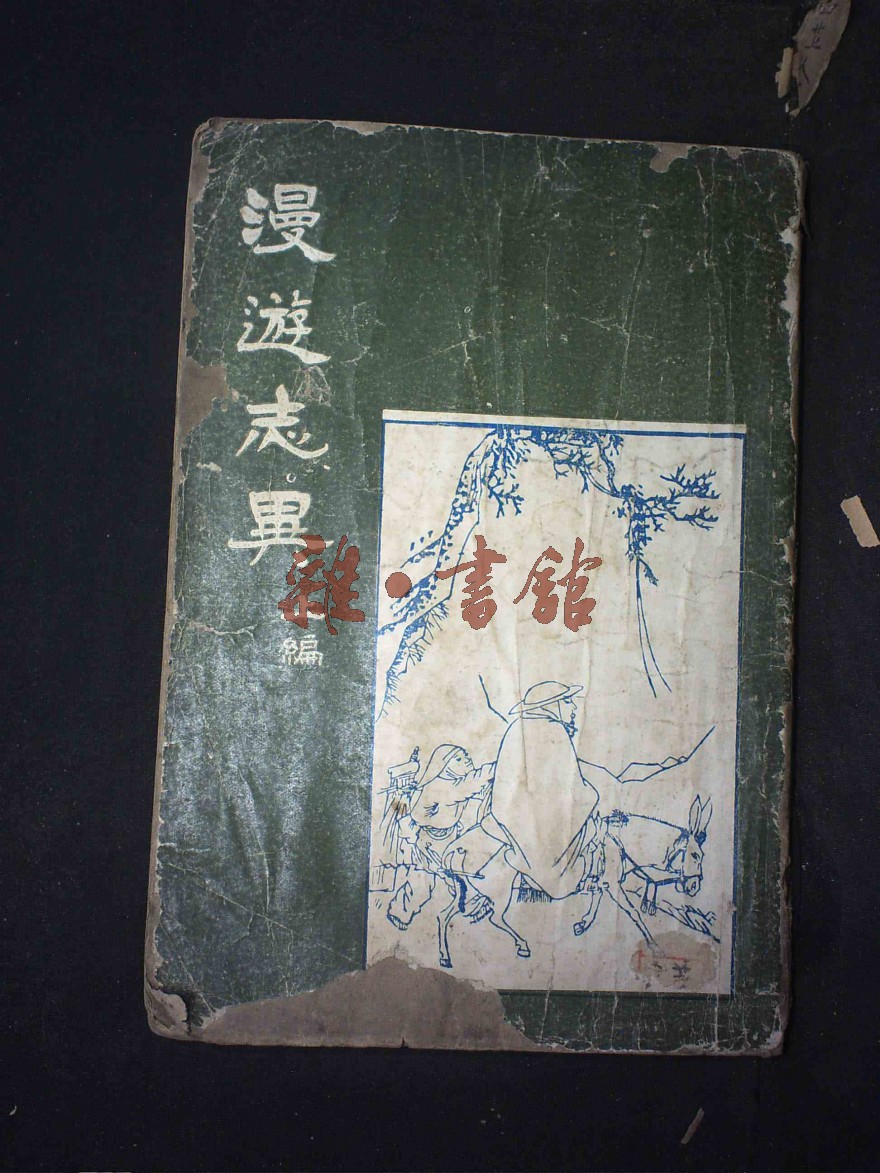 漫遊志異
編
雜·書館